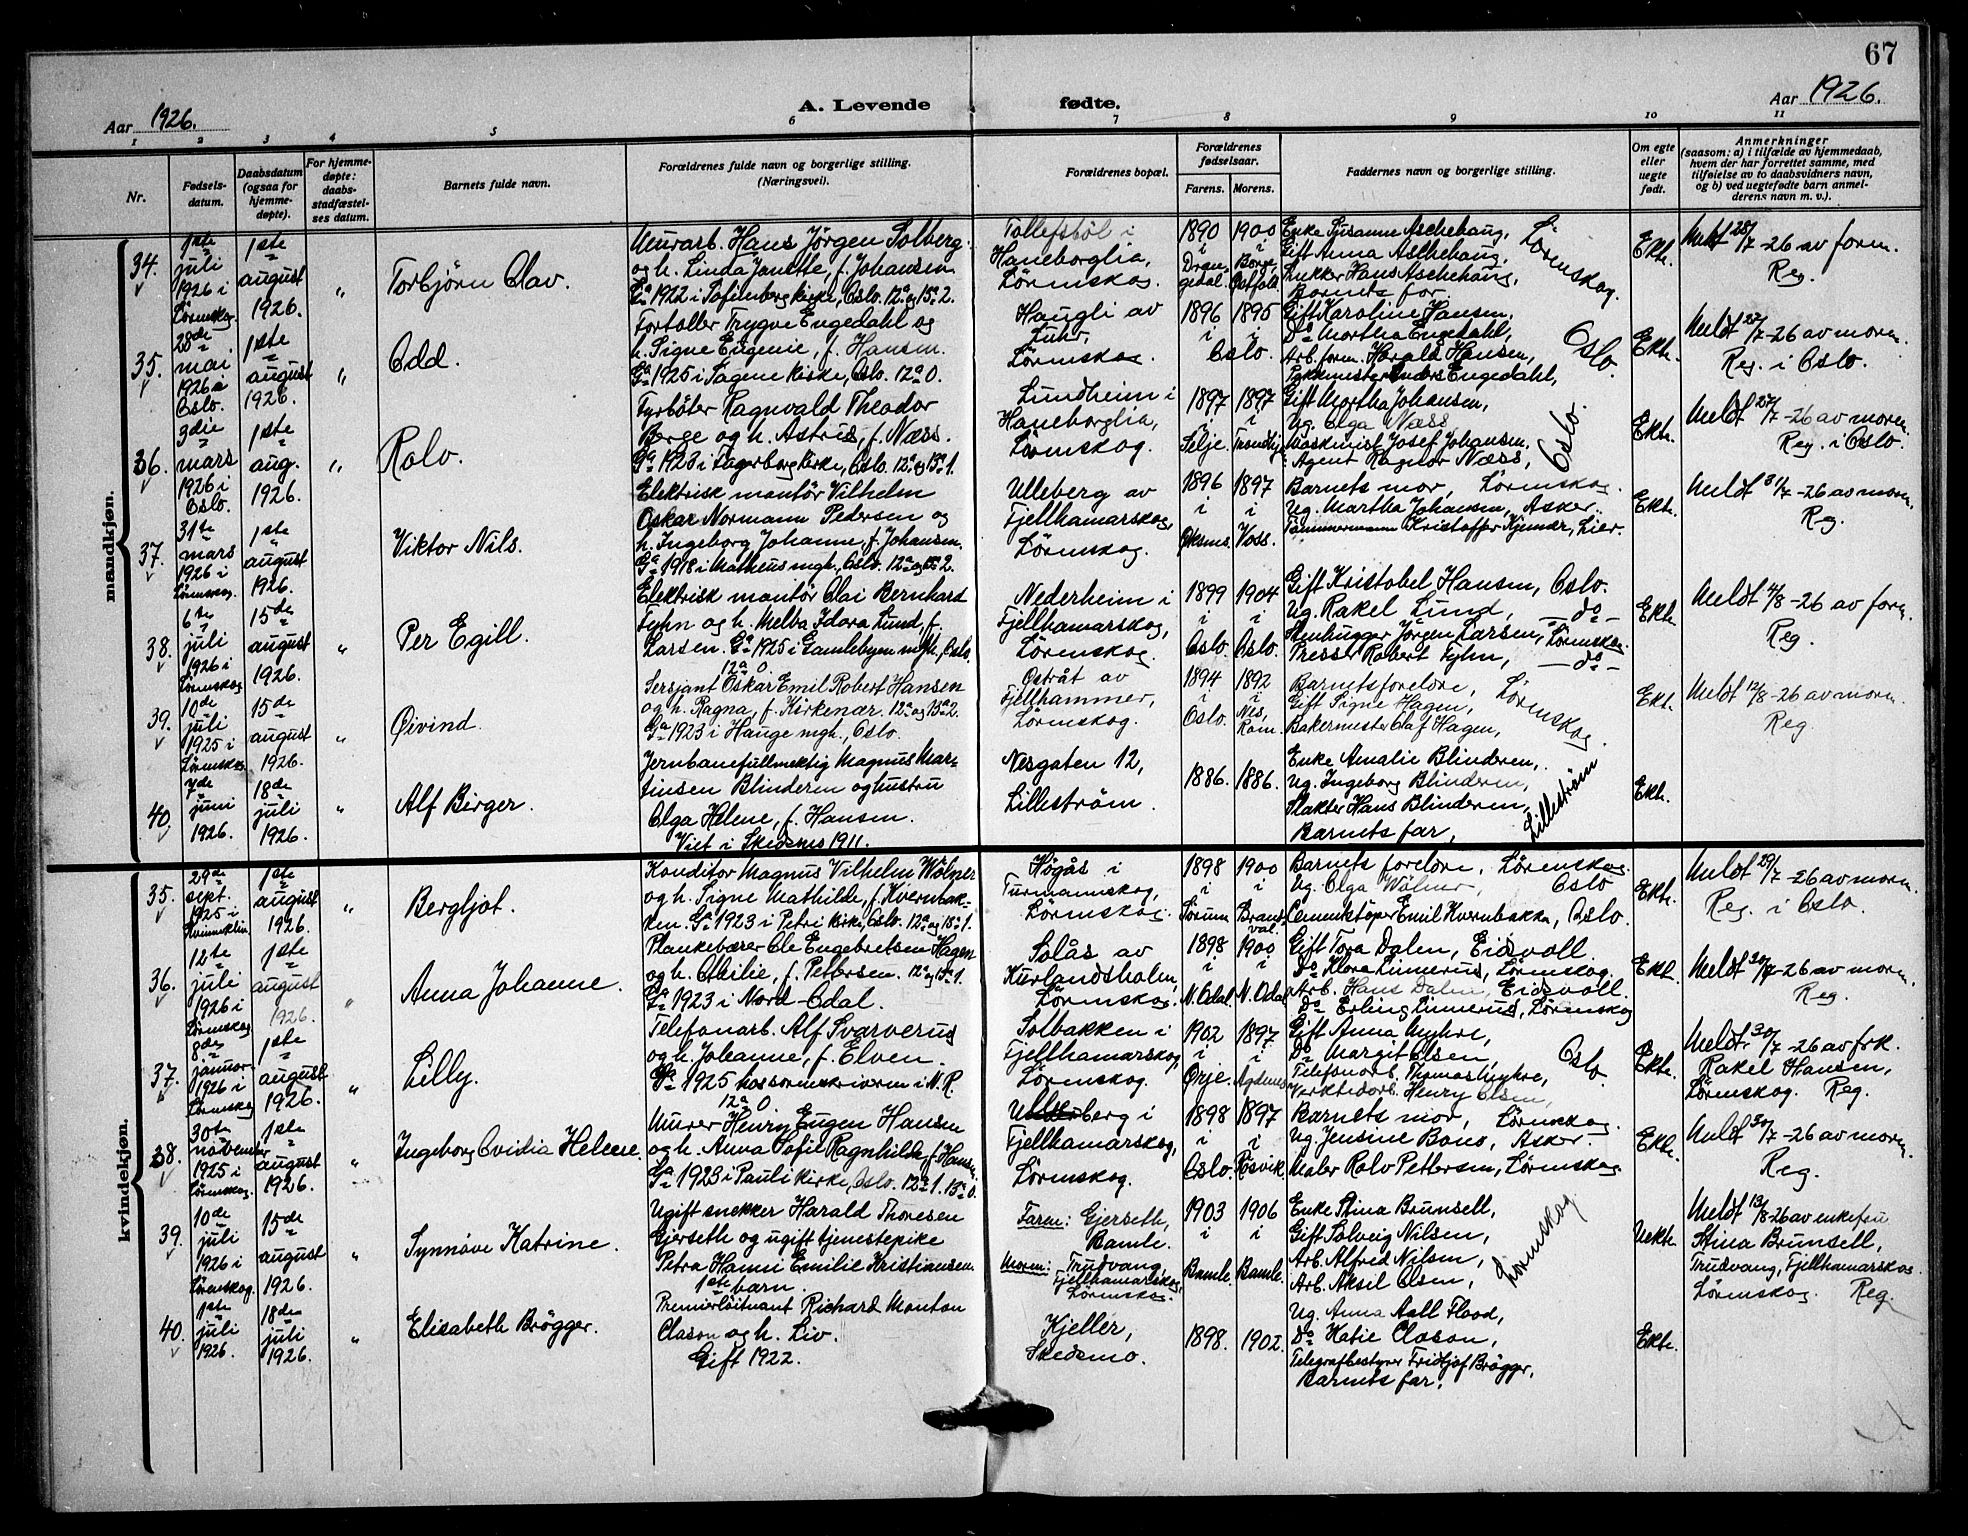 67
Aar 1926.
A. Levende fødte.
Aar 1926.
1 2 3 4 5 6 7 8 9 10 11
Nr.
Fødsels-
datum.
Daabsdatum
(ogsaa for
hjemme-
døpte).
For hjemme-
døpte:
daabs-
stadfæstel-
ses datum.
Barnets fulde navn.
Forældrenes fulde navn og borgerlige stilling.
(Næringsvei).
Forældrenes bopæl.
Forældrenes
fødselsaar.
Farens. Morens.
Faddernes navn og borgerlige stilling.
Om egte
eller
uegte
født.
Anmerkninger
(saasom: a) i tilfælde av hjemmedaab,
hvem der har forrettet samme, med
tilføielse av to daabsvidners navn,
og b) ved uegtefødte barn anmel-
derens navn m. v.).
mandkjøn.
34.
1ste
juli
1926 i
Lörenskog.
1ste
august
1926.
"
Torbjörn Olav.
Murarb. Hans Jörgen Solberg
og h. Linda Janette, f. Johansen
Ga 1922 i Sofienberg kirke, Oslo. 12a og 13a 2.
Tollefsböl i
Haneborglia,
Lörenskog.
1890
i
Dran-
gedal.
1900
i
Borge,
Östfold.
Enke Susanne Aschehaug,
Gift Anna Aschehaug,
Snekker Hans Aschehaug,
Barnets far.
Lörenskog.
Ekte.
Meldt 28/7-26 av faren.
Reg.
35.
28de
mai
1926 i
Oslo.
1ste
august
1926.
"
Odd.
Fortoller Trygve Engedahl og
h. Signe Eugenie, f. Hansen.
Ga 1925 i Sagene kirke, Oslo. 12a 0.
Haugli av
Luhr,
Lörenskog.
1896
i
1895
i
Oslo.
Gift Karoline Hansen,
Do Martha Engedahl,
Arb.form. Harald Hansen,
Pakkmester Anders Engedahl,
Oslo.
Ekte.
Meldt 27/7-26 av moren.
Reg. i Oslo.
36.
3die
mars
1926 i
Oslo.
1ste
aug.
1926.
"
Rolv.
Fyrböter Ragnvald Theodor
Berge og h. Astrid, f. Næss.
Ga 1923 i Fagerborg kirke, Oslo. 12a og 13a 1.
Lundheim i
Haneborglia,
Lörenskog.
1897
i
Selje.
1897
i
Trondhj.
Gift Martha Johansen,
Ug. Olga Næss
Maskinist Josef Johansen,
Agent Ragnar Næss,
Oslo.
Ekte.
Meldt 27/7-26 av moren.
Reg. i Oslo.
37.
31te
mars
1926 i
Lörenskog.
1ste
august
1926.
Viktor Nils.
Elektrisk montör Vilhelm
Oskar Normann Pedersen og
h. Ingeborg Johanne, f. Johansen.
Ga 1918 i Matheus mgh., Oslo. 12a og 13a 2.
Ulleberg av
Fjellhamarskog,
Lörenskog.
1896
i
1897
i
Voss.
Barnets mor, Lörenskog.
Ug. Martha Johansen, Asker.
Tömmermann Kristoffer Kjemdr, Lier.
Ekte.
Meldt 31/7-26 av moren.
Reg.
38.
6te
juli
1926 i
Lörenskog
15de
august
1926.
"
Per Egill.
Elektrisk montör Olai Bernhard
Fyhn og h. Melba Idora Lund, f.
Larsen. Ga 1925 i Gamlebyen mgh., Oslo.
12a 0
Nederheim i
Fjellhamarskog,
Lörenskog.
1899
i
Oslo.
1904
i
Oslo.
Gift Kristobel Hansen, Oslo.
Ug. Rakel Lund, -do-
Stenhugger Jörgen Larsen, Lörenskog.
Presser Robert Fyhn, -do-
Ekte.
Meldt 4/8-26 av faren.
Reg.
39.
10de
juli
1925 i
Lörenskog
15de
august
1926.
"
Øivind.
Sersjant Oskar Emil Robert Hansen
og h. Ragna, f. Kirkenær. 12a og 13a 2.
Ga 1923 i Hauge mgh., Oslo.
Östråt av
Fjellhammer,
Lörenskog.
1894
i
Oslo.
1892
i
Nes,
Rom.
Barnets foreldre,
Gift Signe Hagen,
Bakermester Olaf Hagen,
Lörenskog.
Ekte.
Meldt 12/8-26 av moren.
Reg.
40.
7de
juni
1926.
18de
juli
1926.
"
Alf Birger.
Jernbanefullmektig Magnus Mar-
tinsen Blinderen og hustru
Olga Helene, f. Hansen.
Viet i Skedsmo 1911.
Nesgaten 12,
Lilleström.
1886.
1886.
Enke Amalie Blinderen,
Ug. Ingeborg Blinderen,
Slakter Hans Blinderen,
Barnets far,
Lilleström
Ekte.
kvindekjøn.
35.
29de
sept.
1925 i
Kvinneklin.
1ste
august
1926.
"
Bergljot.
Konditor Magnus Vilhelm Wölner
og h. Signe Mathilde, f. Kvernbak-
ken. Ga 1923 i Petri kirke, Oslo. 12a og 13a 1.
Högås i
Turmannskog,
Lörenskog.
1898
i
Sörum
1900
i
Brand-
val.
Barnets foreldre, Lörenskog.
Ug. Olga Wölner, Oslo
Cementstöper Emil Kvernbakken, Oslo.
Ekte.
Meldt 29/7-26 av moren.
Reg. i Oslo.
36.
12te
juli
1926 i
Lörenskog
1ste
august
1926.
"
Anna Johanne.
Plankebærer Ole Engebretsen Hagen
og h. Otilie, f. Pettersen. 12a og 13a 1.
Ga 1923 i Nord-Odal.
Solås av
Kurlandsholen,
Lörenskog.
1898
i
N. Odal.
1900
i
N. Odal
Gift Tora Dalen, Eidsvoll.
Do Klara Linnerud, Lörenskog.
Arb. Hans Dalen, Eidsvoll.
Do Erling Linnerud, Lörenskog
Ekte.
Meldt 30/7-26 av moren.
Reg.
37.
8de
januar
1926 i
Lörenskog
1ste
august
1926.
"
Lilly.
Telefonarb. Alf Svarverud
og h. Johanne, f. Elven.
Ga 1925 hos sorenskriveren i N.R.
12a 0
Solbakken i
Fjellhamarskog,
Lörenskog.
1902
i
Ørje.
1897
i
Agdenes
Gift Anna Myhre,
Do Margit Olsen,
Telefonarb. Thomas Myhre,
Verkstedarb. Henry Olsen,
Oslo.
Ekte.
Meldt 30/7-26 av frk.
Rakel Hansen,
Lörenskog. Reg.
38.
30te
november
1925 i
Lörenskog.
1ste
august
1926.
"
Ingeborg Ovidia Helene.
Murer Henry Eugen Hansen
og h. Anna Sofie Ragnhilde, f. Hansen
Ga 1923 i Pauli kirke, Oslo. 12a 1. 13a 0.
Ulleberg i
Fjellhamarskog,
Lörenskog.
1898
i
Oslo.
1897
i
Rösvik.
Barnets mor, Lörenskog.
Ug. Jensine Bono, Asker.
Maler Rolv Pettersen, Lörenskog
Ekte.
Meldt 30/7-26 av moren.
Reg.
39.
10de
juli
1926 i
Lörenskog.
15de
august
1926.
"
Synnöve Katrine.
Ugift snekker Harald Thoresen
Gjerseth og ugift tjenestepike
Petra Hanni Emilie Kristiansen
1ste barn.
Faren: Gjerseth,
Bamle.
Moren: Trudvang,
Fjellhamarskog,
Lörenskog.
1903
i
Bamle.
1906
i
Bamle.
Enke Stina Brunsell,
Gift Solveig Nilsen,
Arb. Alfred Nilsen,
Arb. Aksel Olsen,
Lörenskog
Uekte.
Meldt 13/8-26 av enkefru
Stina Brunsell,
Trudvang, Fjellhamarskog
Lörenskog. Reg.
40.
1ste
juli
1926.
18de
juli
1926.
"
Elisabeth Brögger.
Premierlöitnant Richard Monton
Clason og h. Liv.
Gift 1922.
Kjeller,
Skedsmo.
1898.
1902.
Ug. Anna Aall Flood,
Do Katie Clason,
Telegrafbestyrer Fridtjof Brögger,
Barnets far,
Ekte.